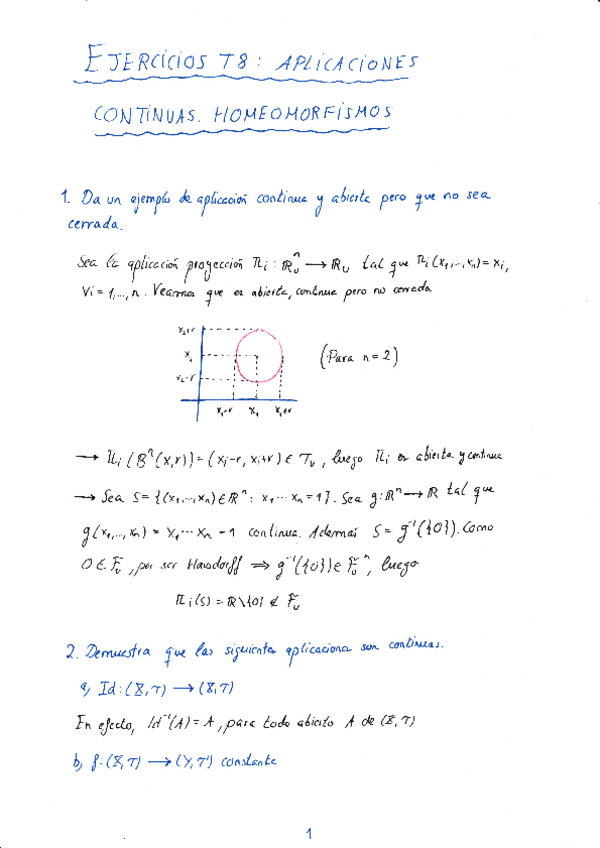 EJERCICIOS T8: APLICACIONES
CONTINUAS. HOMEOMORFISMOS
1. Da un ejemplo de aplicación continua y abierta pero que no sea
cerrada.
Sea la aplicación proyección Πi: ℝuⁿ → ℝu tal que Πi(x1,...,xn)=xi,
∀i=1,...,n. Veamos que es abierta, continua pero no cerrada
x2+r
x2
x2-r
(Para n=2)
x1-r x1 x1+r
→ Πi(Bⁿ(x,r))=(xi-r, xi+r)∈Tu, luego Πi es abierta y continua
→ Sea S={(x1,...,xn)∈ℝⁿ: x1···xn=1}. Sea g:ℝⁿ→ℝ tal que
g(x1,...,xn) = x1···xn - 1 continua. Además S = g⁻¹({0}). Como
0∈Fu, por ser Hausdorff ⟹ g⁻¹({0})∈Fuⁿ, luego
Πi(S)=ℝ\{0}∉Fu
2. Demuestra que las siguientes aplicaciones son continuas.
a) Id:(X,T)→(X,T)
En efecto, Id⁻¹(A)=A, para todo abierto A de (X,T)
b) f:(X,T)→(Y,T') constante
1